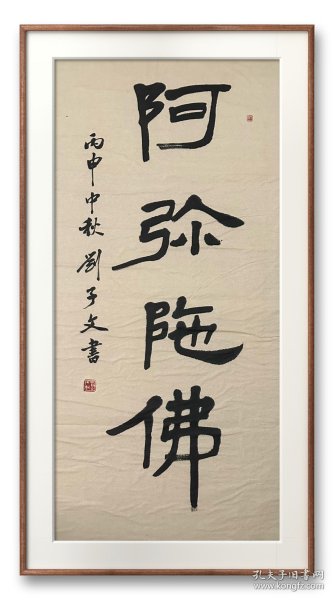 阿弥陀佛
丙申中秋刘子文書
孔夫子旧书网
www.kongfz.com